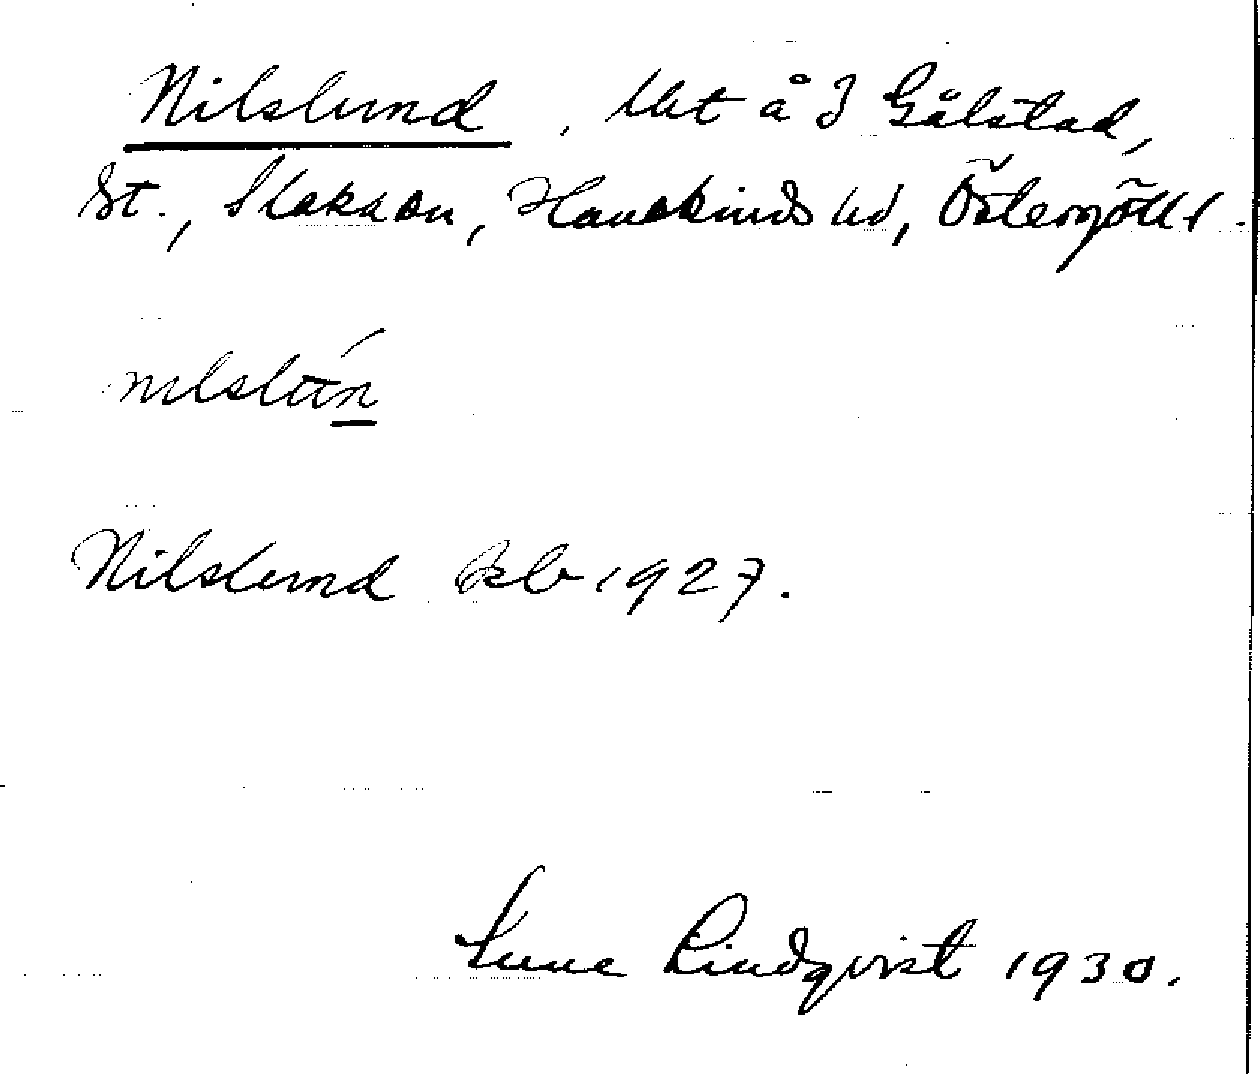 Nilslund, lht å I Gälstad,
St., Slaka sn, Hanekinds hd, Östergötl.
nilslun
Nilslund Jsb 1927.
Sune Lindqvist 1930.